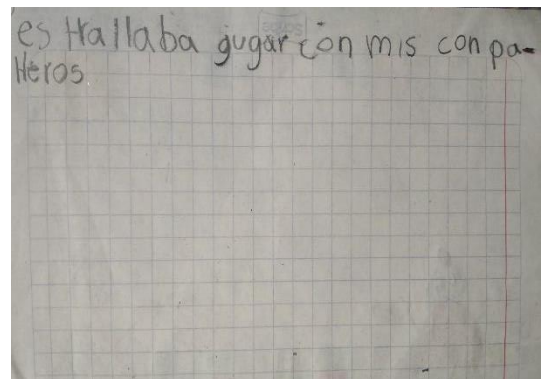 es trallaba gugar con mis conpa-
ñeros